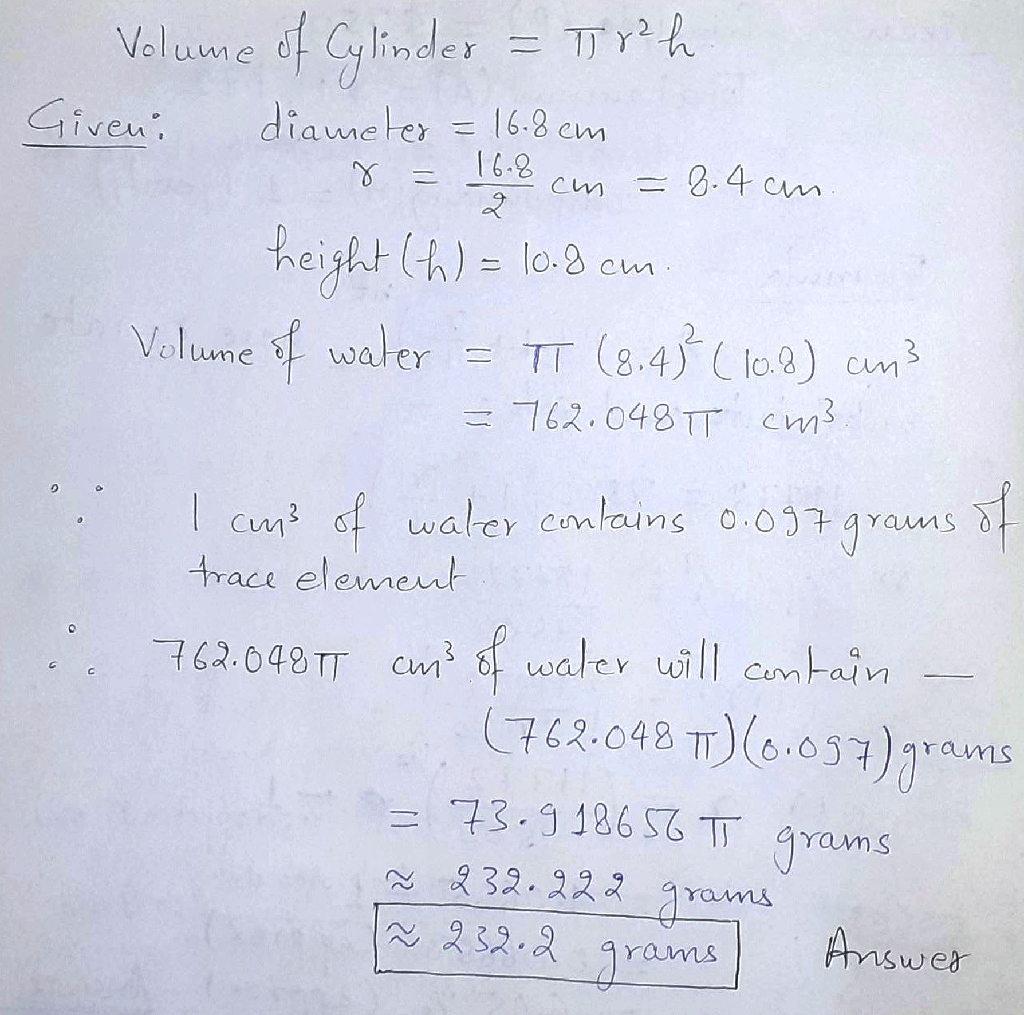 Volume of Cylinder = πr²h
Given: diameter = 16.8 cm
r = 16.8/2 cm = 8.4 cm.
height (h) = 10.8 cm.
Volume of water = π (8.4)² (10.8) cm³
= 762.048π cm³.
∵ 1 cm³ of water contains 0.097 grams of
trace element.
∴ 762.048π cm³ of water will contain —
(762.048 π)(0.097) grams
= 73.918656 π grams
≈ 232.222 grams
≈ 232.2 grams Answer